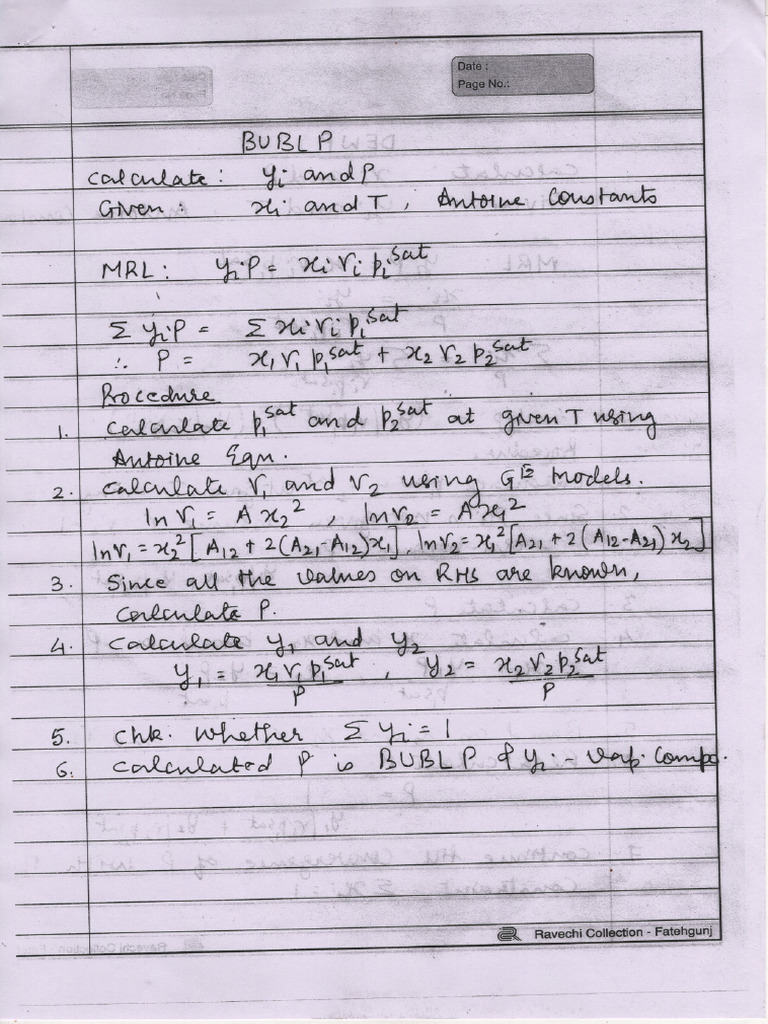 Date :
Page No.:
BUBL P
Calculate: yi and P
Given: xi and T, Antoine Constants
MRL: yiP = xi γi pi^sat
Σ yiP = Σ xi γi pi^sat
∴ P = x1 γ1 p1^sat + x2 γ2 p2^sat
Procedure
1. Calculate p1^sat and p2^sat at given T using
Antoine Eqn.
2. Calculate γ1 and γ2 using G^E Models.
ln γ1 = A x2^2 , ln γ2 = A x1^2
ln γ1 = x2^2 [A12 + 2(A21 - A12) x1], ln γ2 = x1^2 [A21 + 2(A12 - A21) x2]
3. Since all the values on RHS are known,
calculate P.
4. Calculate y1 and y2
y1 = x1 γ1 p1^sat / P , y2 = x2 γ2 p2^sat / P
5. Chk. whether Σ yi = 1
6. Calculated P is BUBL P & yi - vap. Compo.
Ravechi Collection - Fatehgunj